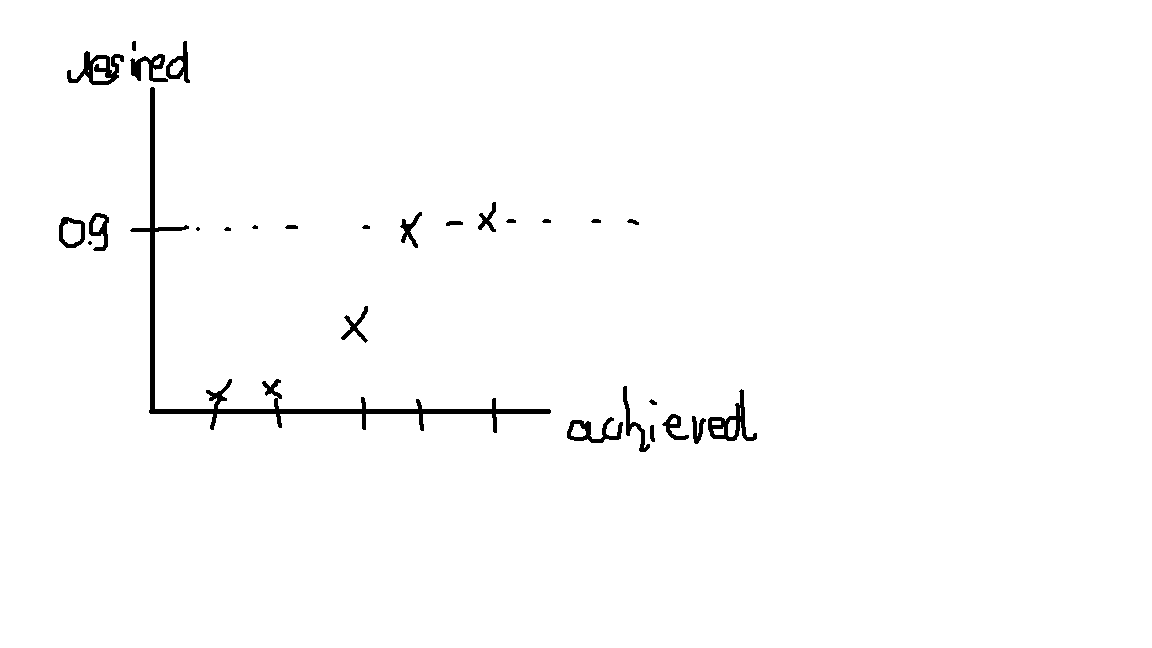 desired
0.9
achieved